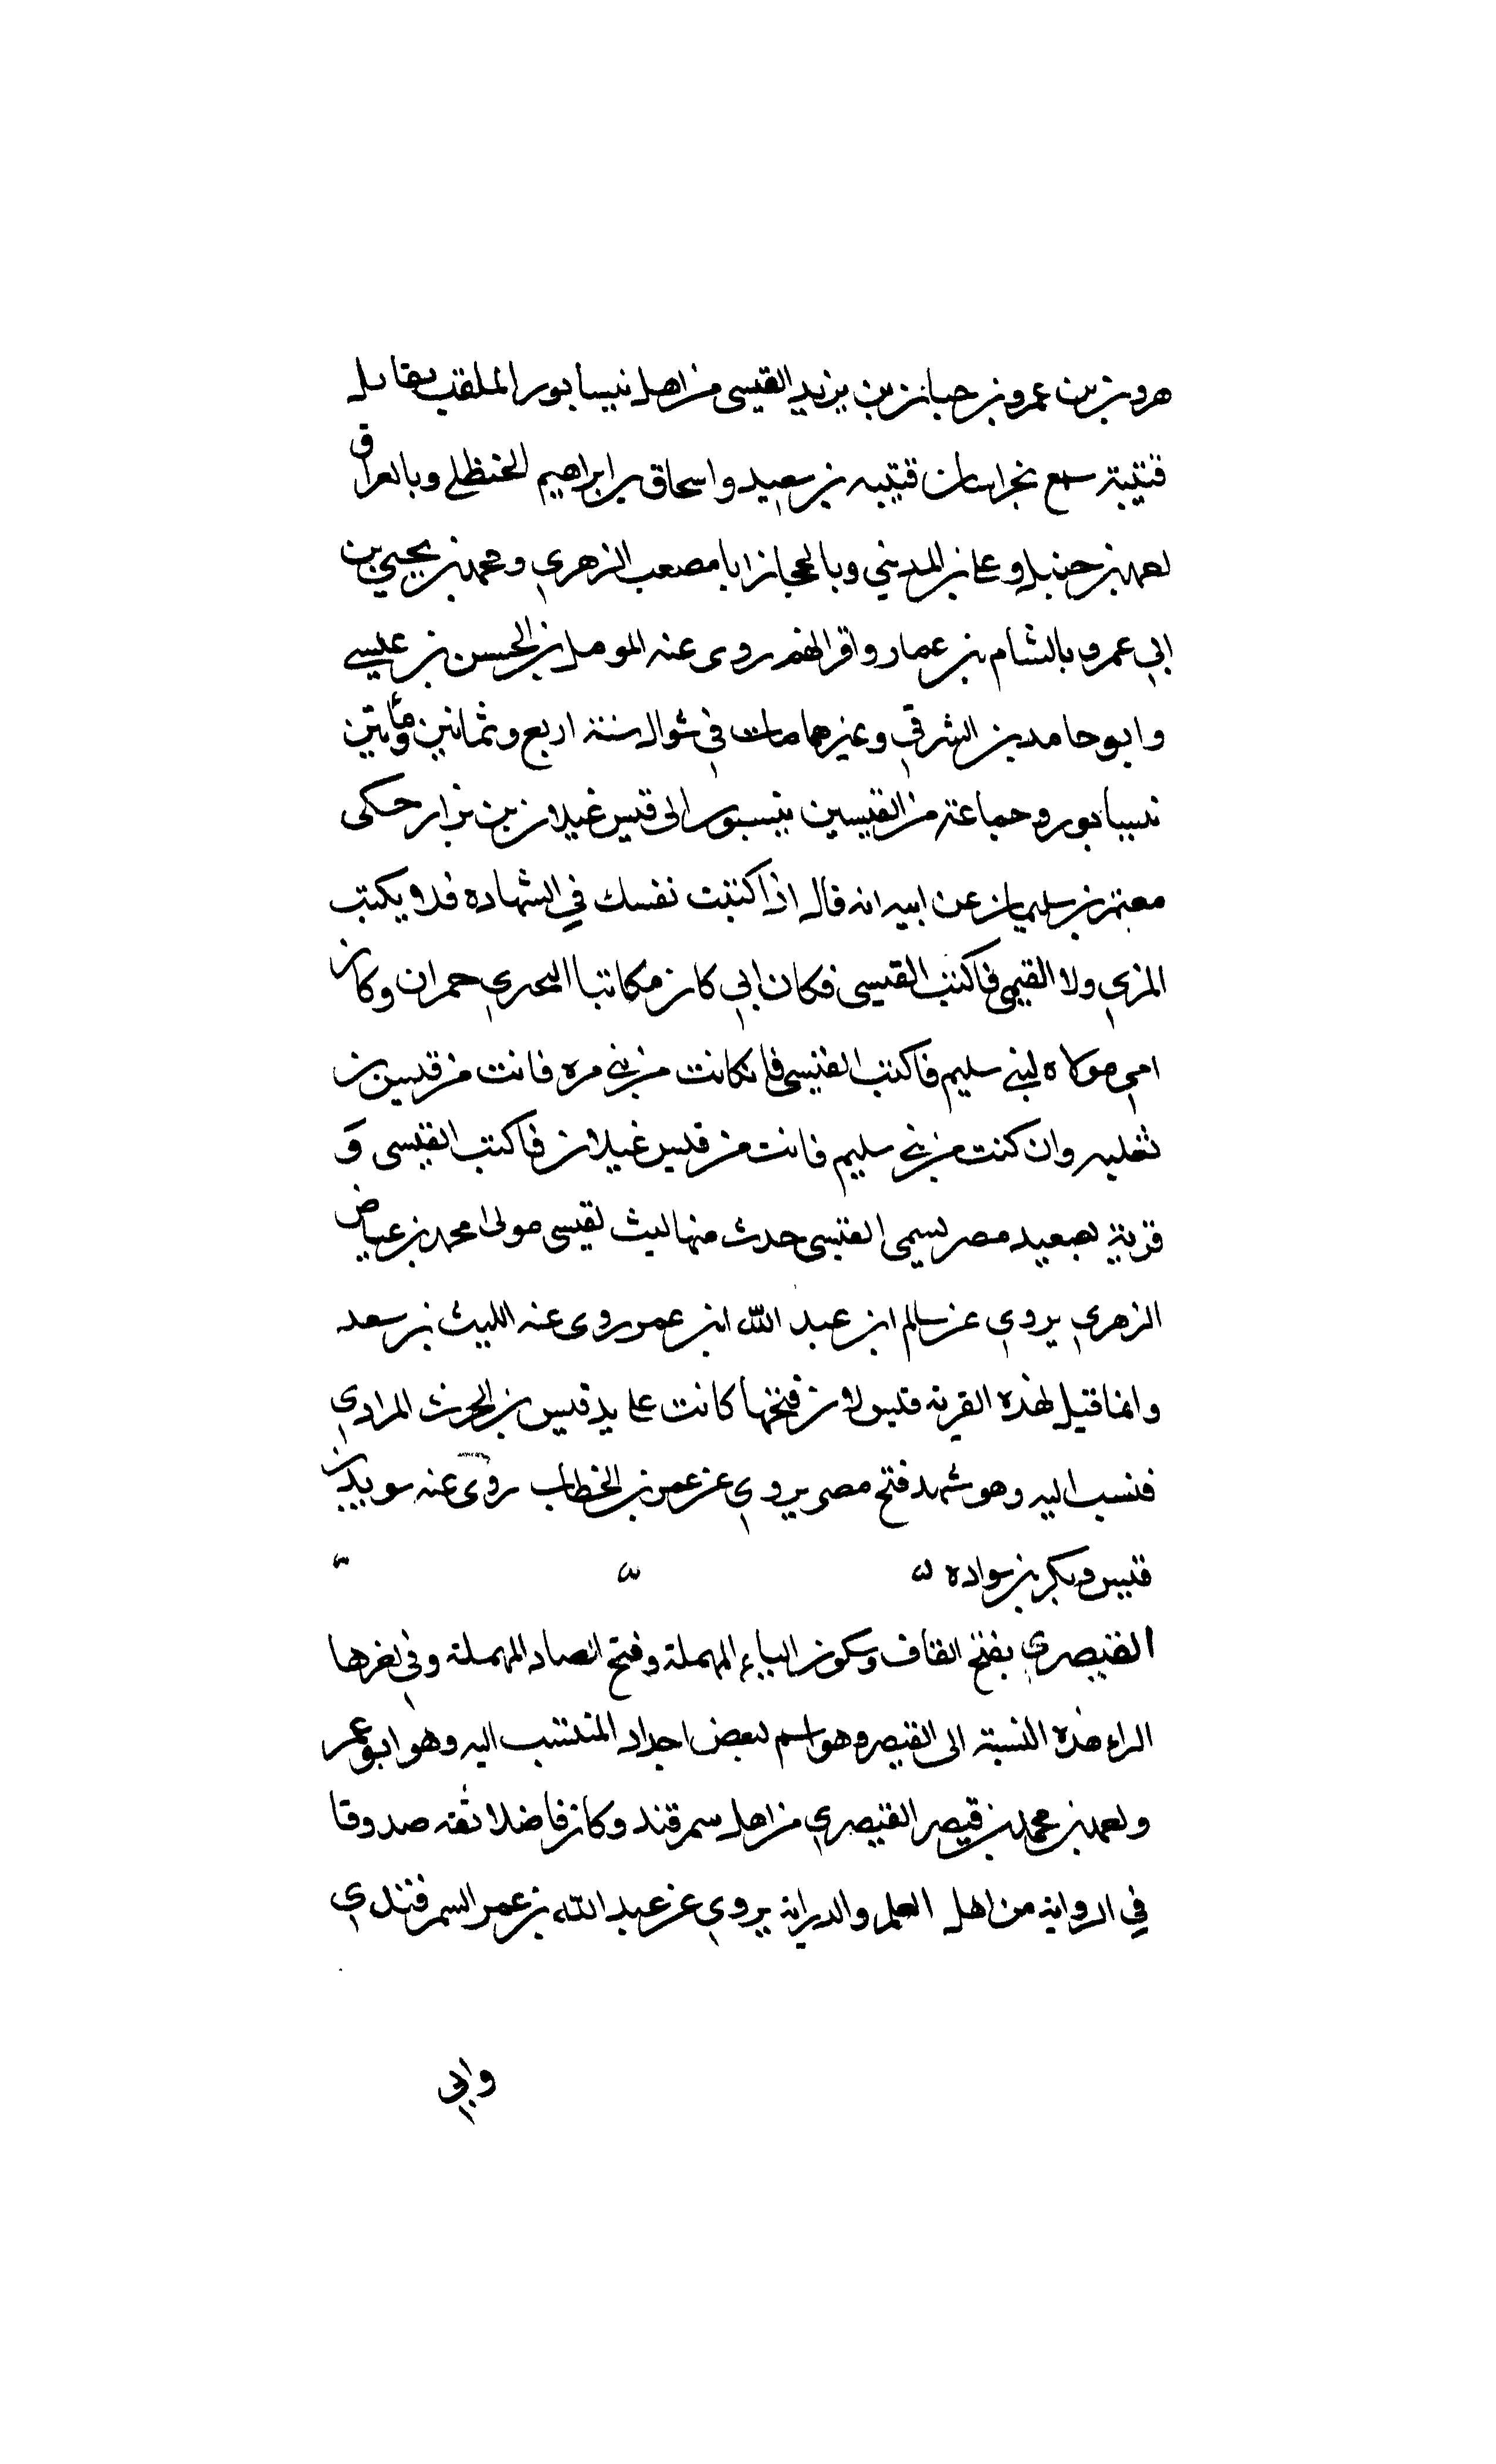 هرو بن بن عمرو بن حبان بن يزيد القيسي من اهل نيسابور الملقب بقابله
قتيبة سمع بخراسان قتيبه بن سعيد واسحاق بن ابراهيم الحنظلي وبالعراق
احمد بن حنبل وعلي بن المديني وبالحجاز ابا مصعب الزهري ومحمد بن يحيي بن
ابي عمرو بالشام بن عمار واقرانهم روى عنه المومل بن الحسن بن عيسي
وابو حامد بن الشرقي وغيرهما مات في شوال سنة اربع وثمانين ومأتين
نيسابور وجماعة من القيسين ينسبون الى قيس غيلان بن نزار حكى
معتمر بن سليمان عن ابيه انه قال اذا كتبت نفسك في الشهاده فلا ويكتب
المزي ولا القيمي فاكتب القيسي فكان ابي كان مكاتبا البحري حمران وكان
امي مولاه لبني سليم فاكتب القيسي فان كانت من بني مره فانت من قيس بن
ثعلبه وان كنت من بني سليم فانت من قيس غيلان فاكتب القيسي وَ
قرية بصعيد مصر يسمى القيسي حدث منها ليث لقيسي مولى محمد بن عياض
الزهري يروي عن سالم ابن عبد الله ابن عمر روى عنه الليث بن سعد
وانما قيل لهذه القريه قيس لان فتحها كانت على يد قيس بن الحرث المرادي
فنسب اليه وهو شهد فتح مصر يروي عن عمر بن الخطاب روى عنه سويد بن
قيس وبكر بن سواده
القيصري بفتح القاف وسكون الياء المهملة وفتح الصاد المهملة وفي اخرها
الراء هذه النسبة الى القيصر وهو اسم لبعض اجداد المنتسب اليه وهو ابو عمر
واحمد بن محمد بن قيصر القيصري من اهل سمرقند وكان فاضلا ثقه صدوقا
في الروايه من اهل العلم والدرايه يروي عن عبد الله بن عمر السمرقندي
وابي